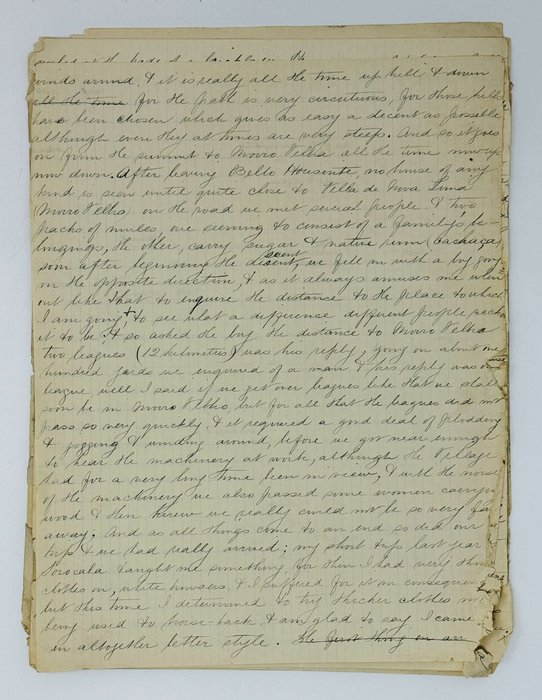 winds around, & it is really all the time up hill & down
all the time for the path is very circuitous, for those hills
have been chosen which gives as easy a decent as possible
although even they at times are very steep. And so it goes
on from the summit to, Morro Velho all the time now up
now down. After leaving Bello Housinte, no house of any
kind is seen until quite close to Villa de Nova Lima
(Morro Velho) on the road we met several people. & two
packs of mules, one seeming to consist of a family's be-
longings, the other, carry sugar & native rum (cachaça)
soon after beginning the decent, we fell in with a boy going
in the opposite direction, & as it always amuses me when
out like that to enquire the distance to the place to which
I am going & to see what a difference different people reck
it to be. & so asked the boy the distance to Morro Velho
two leagues (12 kilometres) was his reply, going on about one
hundred yards we enquired of a man & his reply was one
league well I said if we get over leagues like that we shall
soon be in Morro Velho, but for all that the leagues did not
pass so very quickly. & it required a good deal of plodding
& jogging & winding around, before we got near enough
to hear the machinery at work, although the village
had for a very long time been in view, & with the noise
of the machinery we also passed some women carrying
wood & then knew we really could not be so very far
away. And as all things come to an end so did our
trip & we had really arrived; my short trip last year
Sorocaba taught me something, for then I had very thin
clothes on, white trousers, & I suffered for it in consequence
but this time I determined to try thicker clothes not
being used to horse-back, & am glad to say I came
in altogether better style. The first thing on arr